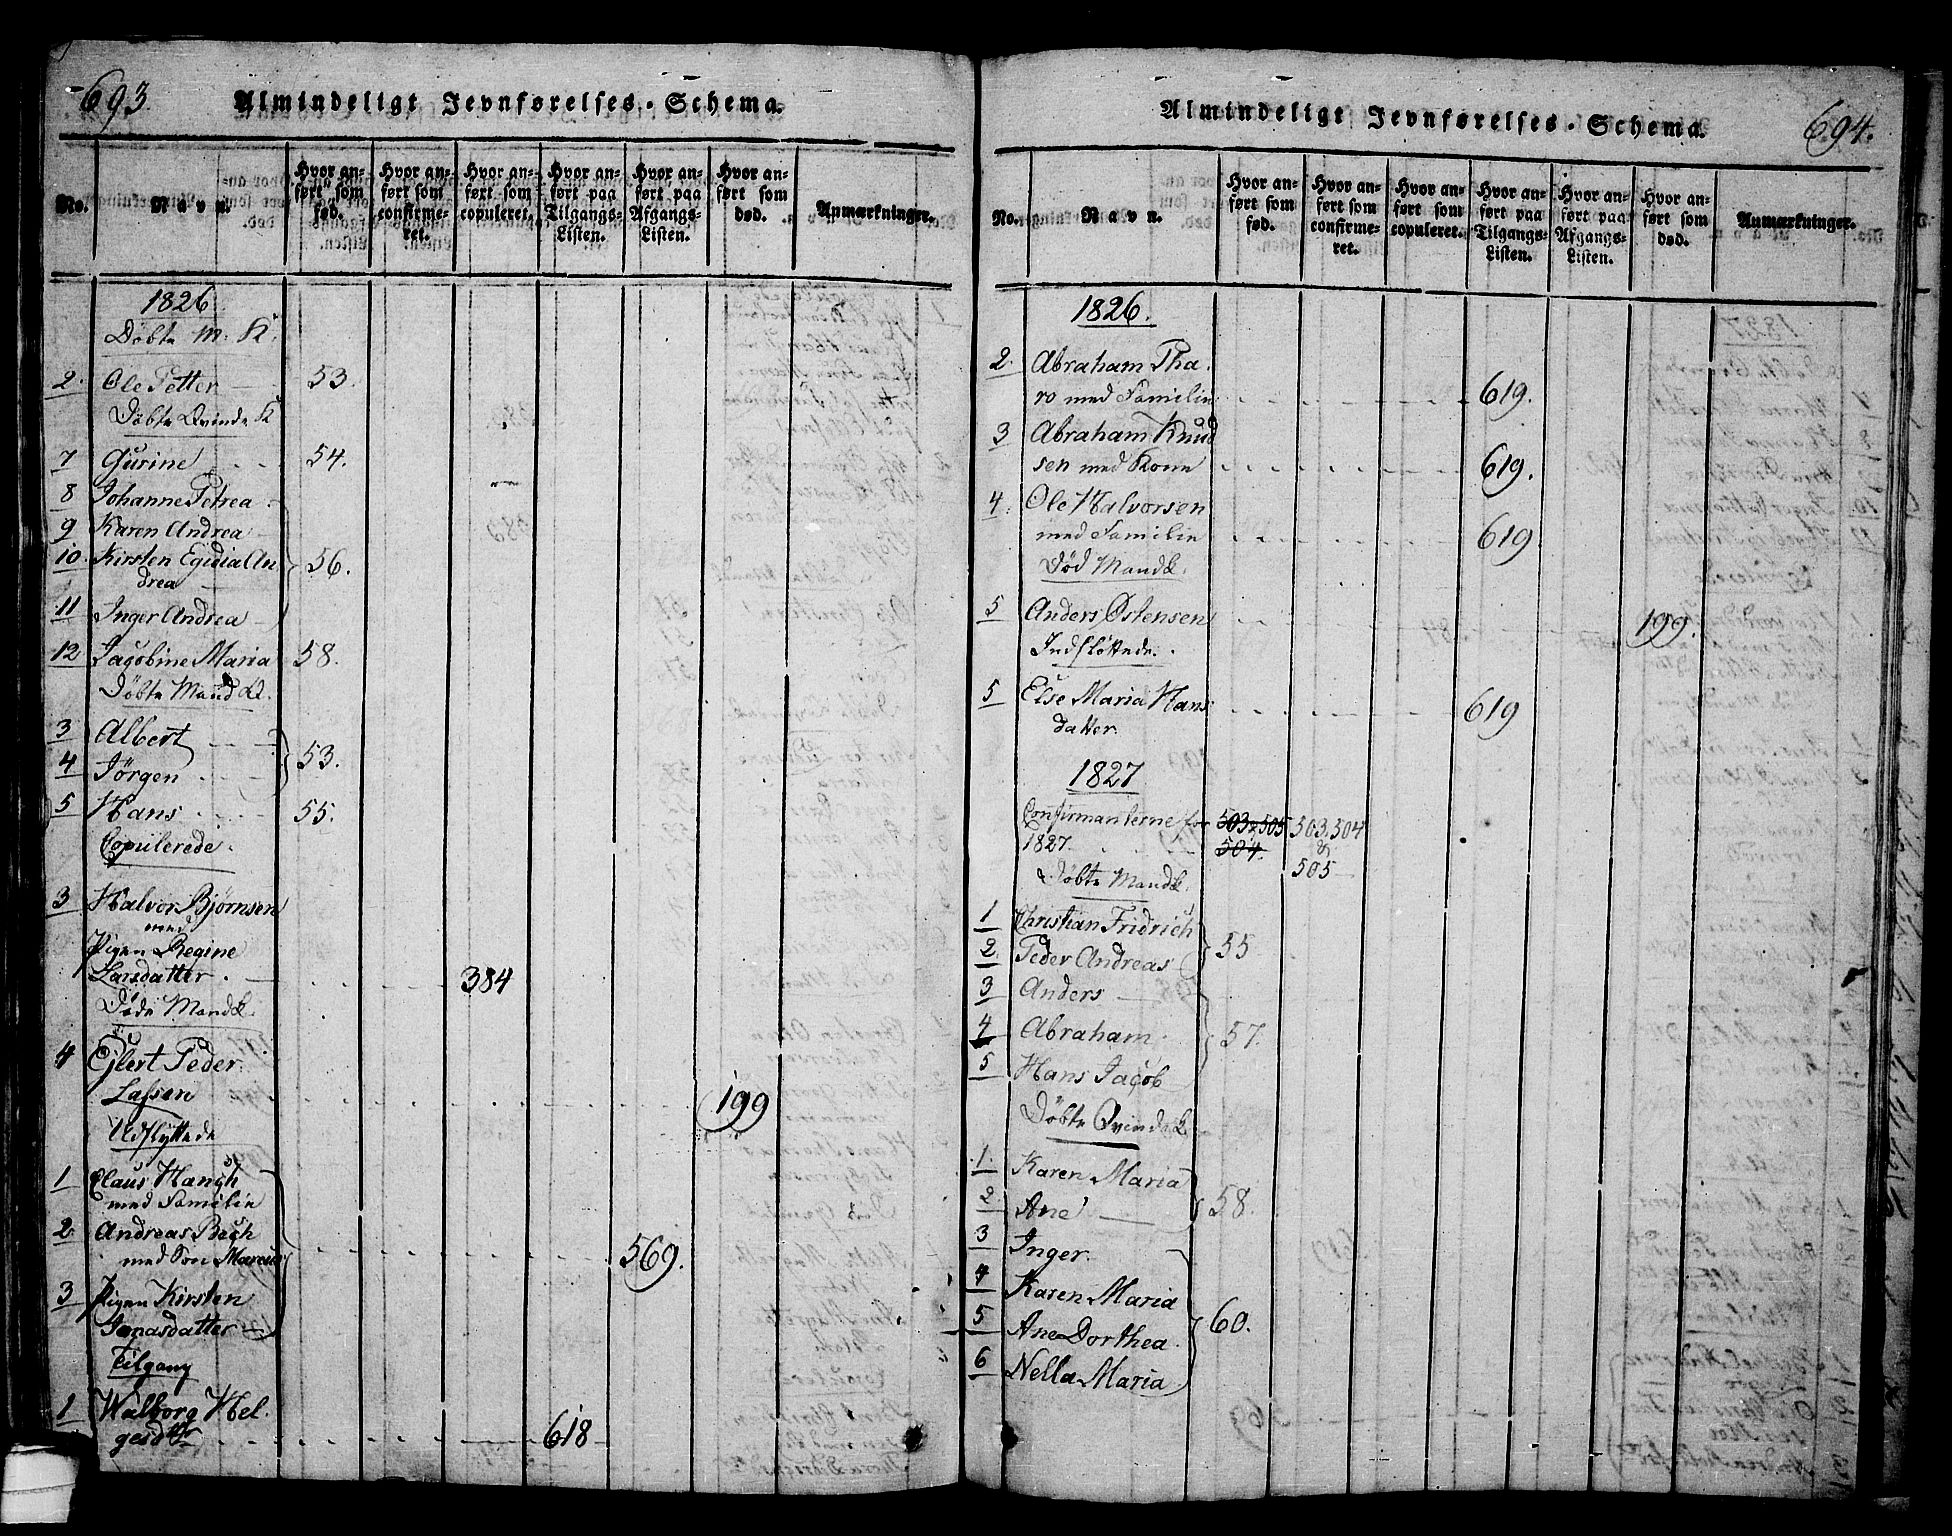 693.
Almindeligt Jevnførelses-Schema.
No.
Navn.
Hvor anført som fød.
Hvor anført som confirmeret.
Hvor anført som copuleret.
Hvor anført paa Tilgangs-Listen.
Hvor anført paa Afgangs-Listen.
Hvor anført som død.
Anmærkninger.
1826
Döbte M: K.
2. Ole Petter 53.
Döbte Qvinde K
7 Gurine 54.
8 Johanne Petrea
9 Karen Andrea
10. Kirsten Egidia An
drea 56.
11 Inger Andrea
12 Jacobine Maria 58.
Döbte Mand
3 Albert
4 Jörgen 53.
5 Hans 55.
Copulerede.
3 Halvor Bjørnsen
med
Pigen Regine
Larsdatter 384
Döde Mandk.
4 Ejlert Peder
Lassen 199
Udflyttede
1 Claus Haugh
med Familie
2. Andreas Bech
med Søn Marcus 569.
3 Pigen Kirsten
Jonasdatter
Tilgang
1 Walborg Hel
gesdtr 618
694.
Almindeligt Jevnførelses-Schema.
No.
Navn.
Hvor anført som fød.
Hvor anført som confirmeret.
Hvor anført som copuleret.
Hvor anført paa Tilgangs-Listen.
Hvor anført paa Afgangs-Listen.
Hvor anført som død.
Anmærkninger.
1826.
2. Abraham Tha
ro med Familie 619.
3 Abraham Knud
sen med Kone 619.
4. Ole Halvorsen
med Familie 619
Död Mandk.
5 Anders Østensen 199.
Indflöttede.
5 Else Maria Hans
datter 619
1827
Confirmanterne for 503 505 503.504
1827. 504. &
505
Döbte Mandk.
1 Christian Fridrich
2. Peder Andreas 55
3 Anders
4 Abraham 57.
5 Hans Jacob
Döbte Qvindek
1. Karen Maria
2 Ane 58.
3 Inger
4 Karen Maria
5 Ane Dorthea 60.
6 Nella Maria